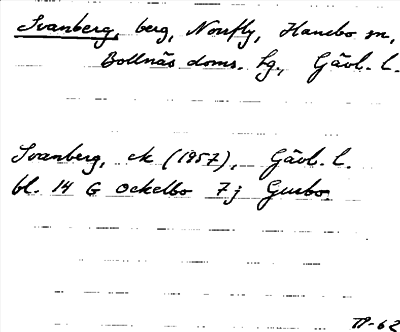 Svanberg, berg, Norrfly, Hanebo sn,
Bollnäs doms. lg., Gävl. l.
Svanberg, ek (1957), Gävl. l.
bl. 14 G Ockelbo 7j Gusbo.
TP-62